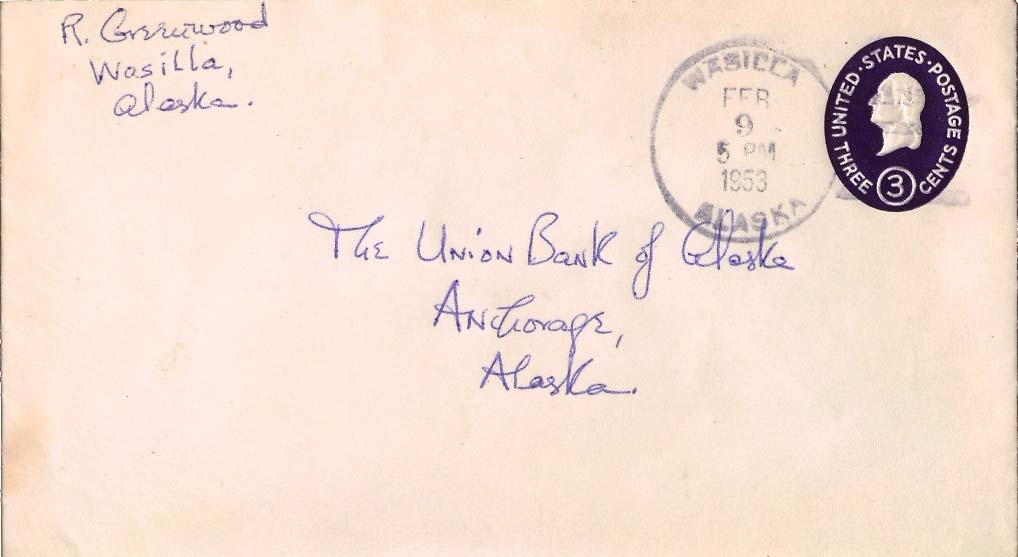 R. Greenwood
Wasilla,
Alaska.
WASILLA
FEB
9
5 PM
1953
ALASKA
UNITED · STATES · POSTAGE
THREE 3 CENTS
The Union Bank of Alaska
Anchorage,
Alaska.